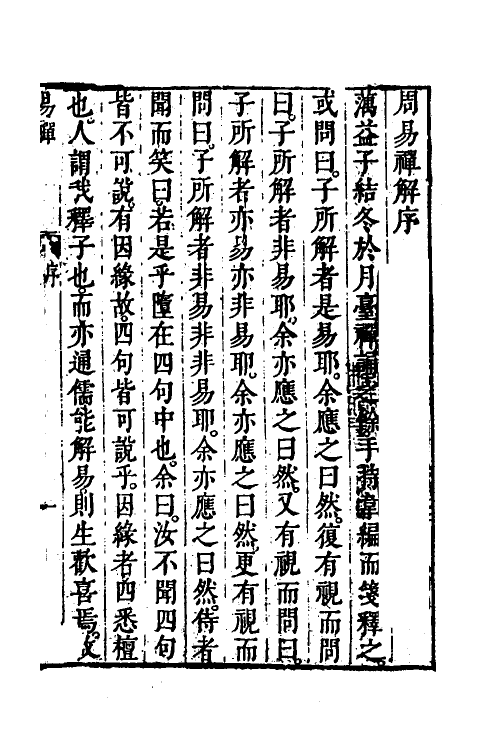 周易禪解序
蕅益子結冬於月臺禪誦之餘手持韋編而箋釋之。
或問曰。子所解者是易耶。余應之曰然。復有視而問
曰。子所解者非易耶。余亦應之曰然。又有視而問曰。
子所解者亦易亦非易耶。余亦應之曰然。更有視而
問曰。子所解者非易非非易耶。余亦應之曰然。侍者
聞而笑曰。若是乎墮在四句中也。余曰。汝不聞四句
皆不可說。有因緣故。四句皆可說乎。因緣者四悉檀
也。人謂我釋子也。而亦通儒能解易。則生歡喜焉。故
易禪 序 一